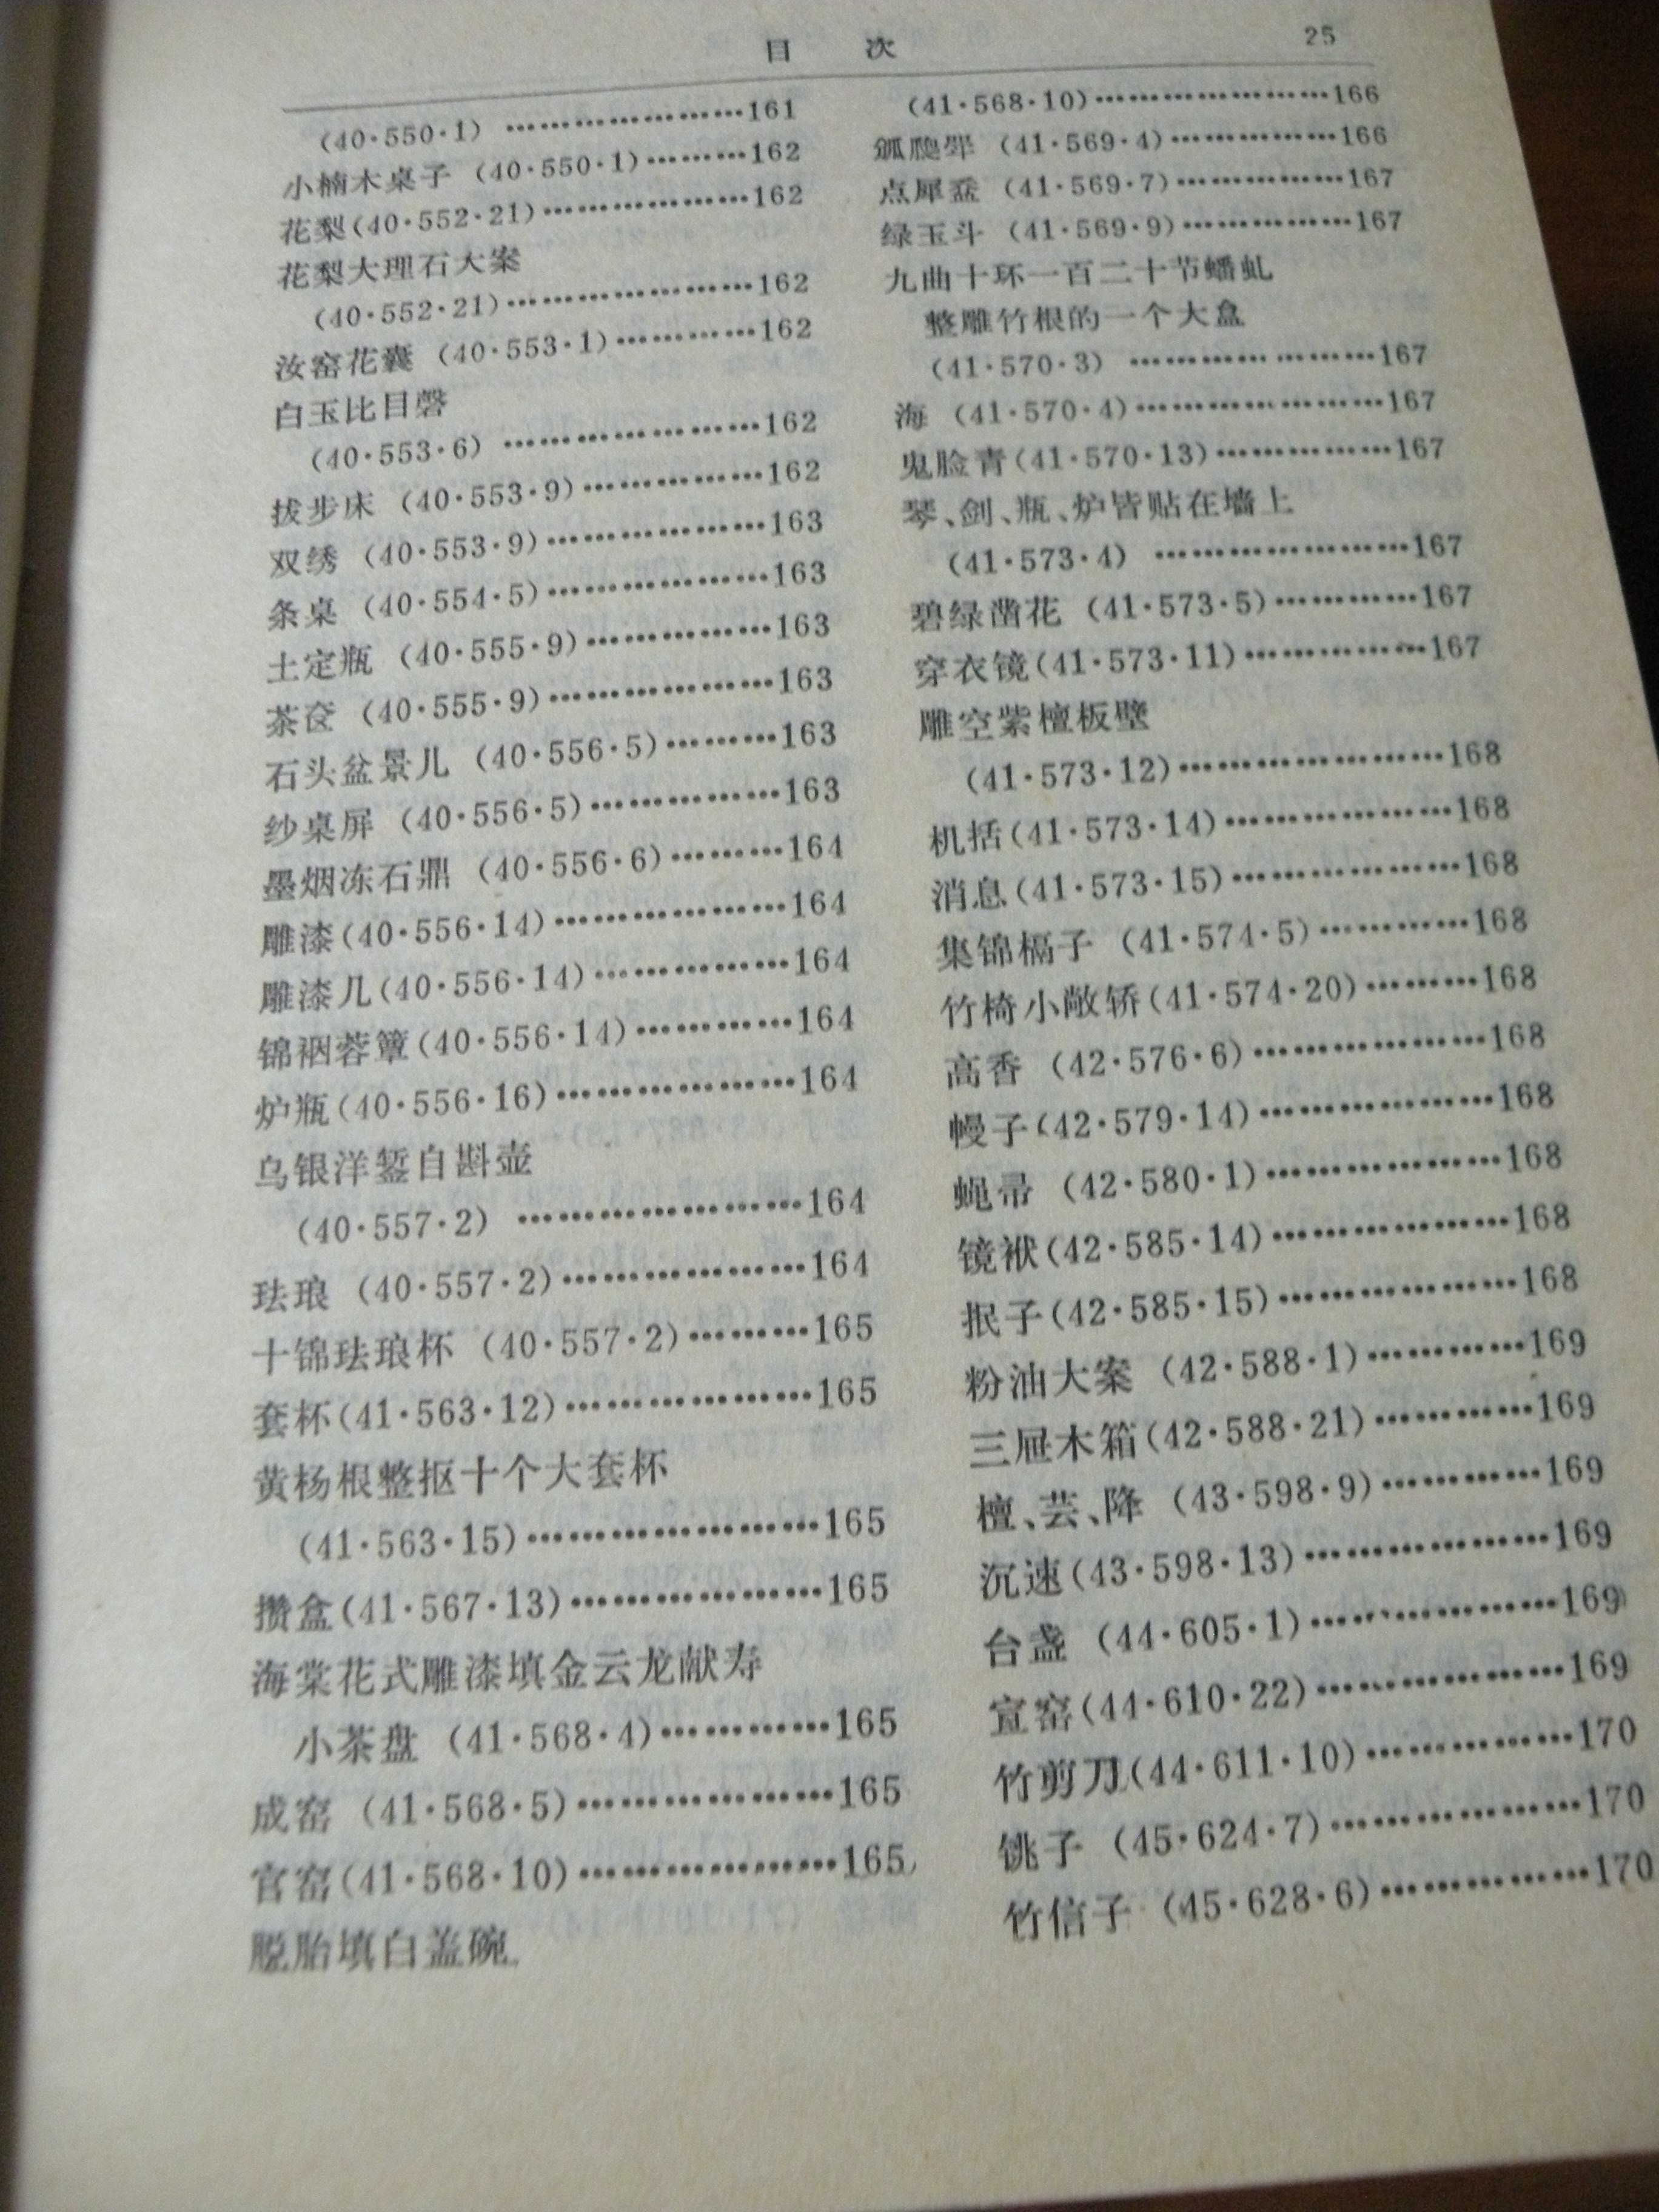 目 次 25
(40·550·1) …………………161
小楠木桌子 (40·550·1)………162
花梨(40·552·21)………………162
花梨大理石大案
(40·552·21)…………………162
汝窑花囊 (40·553·1)…………162
白玉比目磬
(40·553·6) …………………162
拔步床 (40·553·9)……………162
双绣 (40·553·9)………………163
条桌 (40·554·5)………………163
土定瓶 (40·555·9)……………163
茶奁 (40·555·9)………………163
石头盆景儿 (40·556·5)………163
纱桌屏 (40·556·5)……………163
墨烟冻石鼎 (40·556·6)………164
雕漆(40·556·14)………………164
雕漆几(40·556·14)……………164
锦裀蓉簟(40·556·14)…………164
炉瓶(40·556·16)………………164
乌银洋錾自斟壶
(40·557·2) …………………164
珐琅 (40·557·2)………………164
十锦珐琅杯 (40·557·2)………165
套杯(41·563·12)………………165
黄杨根整抠十个大套杯
(41·563·15)…………………165
攒盒(41·567·13)………………165
海棠花式雕漆填金云龙献寿
小茶盘 (41·568·4)…………165
成窑 (41·568·5)………………165
官窑(41·568·10)………………165
脱胎填白盖碗
(41·568·10)…………………166
㼎瓟斝 (41·569·4)……………166
点犀䀉 (41·569·7)……………167
绿玉斗 (41·569·9)……………167
九曲十环一百二十节蟠虬
整雕竹根的一个大盒
(41·570·3) …………………167
海 (41·570·4)…………………167
鬼脸青(41·570·13)……………167
琴、剑、瓶、炉皆贴在墙上
(41·573·4) …………………167
碧绿凿花 (41·573·5)…………167
穿衣镜(41·573·11)……………167
雕空紫檀板壁
(41·573·12)…………………168
机括(41·573·14)………………168
消息(41·573·15)………………168
集锦槅子 (41·574·5)…………168
竹椅小敞轿(41·574·20)………168
高香 (42·576·6)………………168
幔子(42·579·14)………………168
蝇帚 (42·580·1)………………168
镜袱(42·585·14)………………168
抿子(42·585·15)………………168
粉油大案 (42·588·1)…………169
三屉木箱(42·588·21)…………169
檀、芸、降 (43·598·9)…………169
沉速(43·598·13)………………169
台盏 (44·605·1)………………169
宣窑(44·610·22)………………169
竹剪刀(44·611·10)……………170
铫子 (45·624·7)………………170
竹信子 (45·628·6)……………170